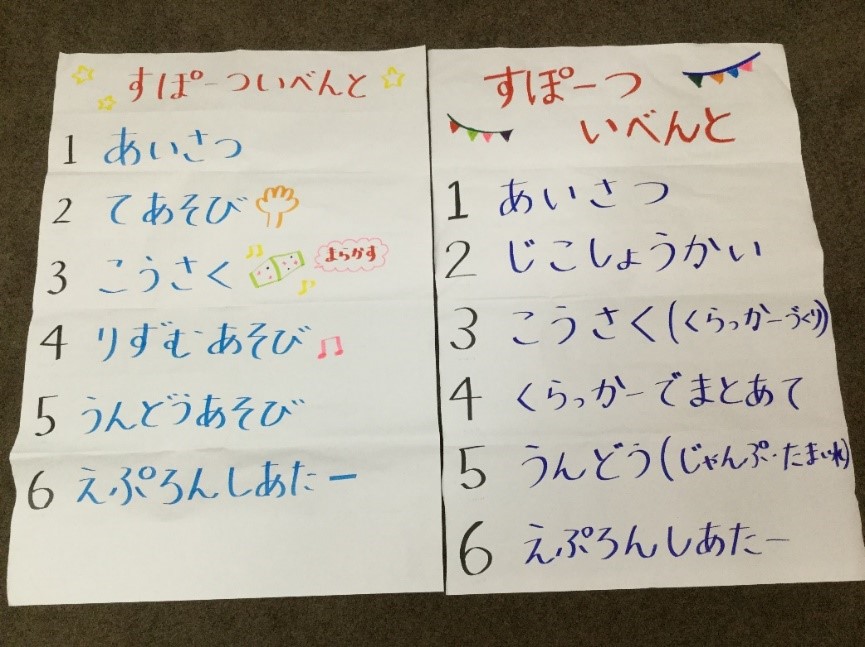 すぽーついべんと
1 あいさつ
2 てあそび
3 こうさく まらかす
4 りずむあそび
5 うんどうあそび
6 えぷろんしあたー
すぽーつ
いべんと
1 あいさつ
2 じこしょうかい
3 こうさく(くらっかーづくり)
4 くらっかーでまとあて
5 うんどう(じゃんぷ・たまいれ)
6 えぷろんしあたー